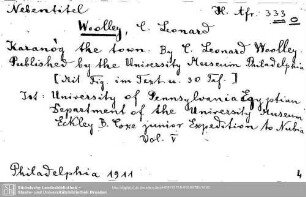 Nebentitel H. Afr. 333 0
Woolley, C. Leonard
Karanòg the town. By C. Leonard Woolley.
Published by the University Museum Philadelphia
[Mit Fig. im Text u. 30 Taf.]
Ist: University of Pennsylvania Egyptian
Department of the University Museum
Eckley B. Coxe junior Expedition to Nubia
Vol. V
Philadelphia 1911 4